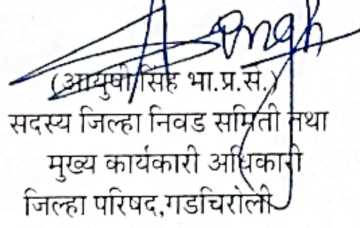 (आयुषी सिंह भा.प्र.से.)
सदस्य जिल्हा निवड समिती तथा
मुख्य कार्यकारी अधिकारी
जिल्हा परिषद,गडचिरोली